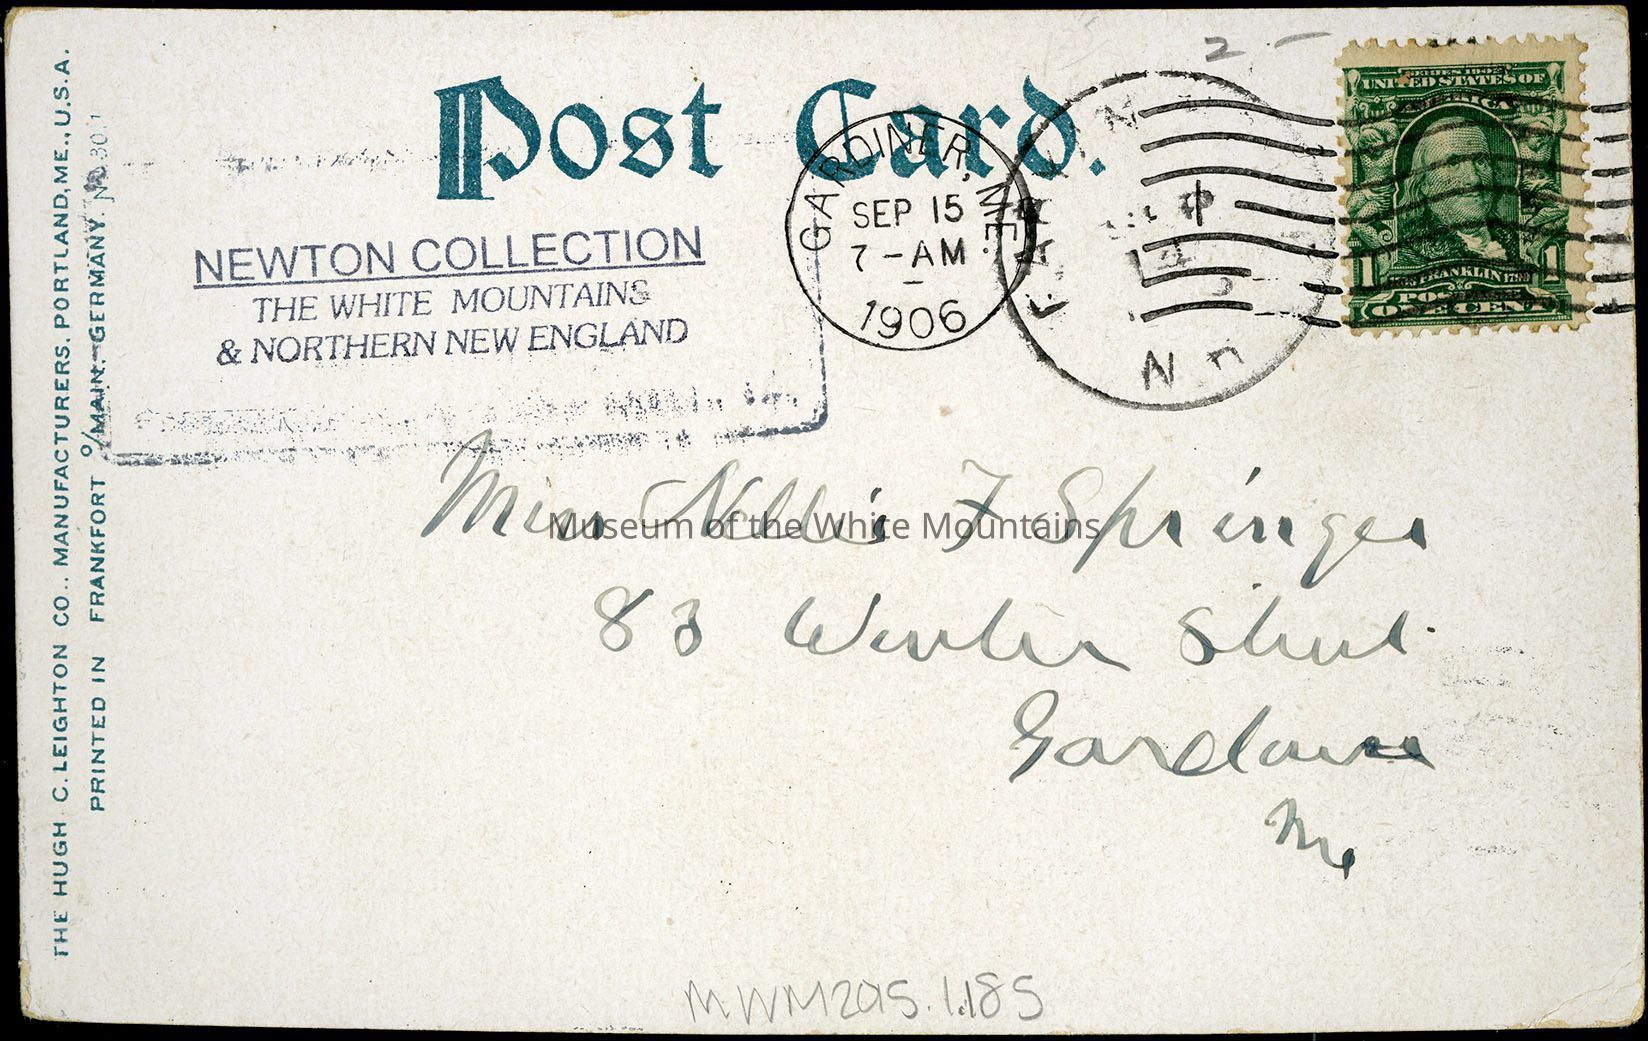 Post Card.
THE HUGH C. LEIGHTON CO., MANUFACTURERS, PORTLAND, ME., U.S.A.
PRINTED IN FRANKFORT o/MAIN, GERMANY.
NEWTON COLLECTION
THE WHITE MOUNTAINS
& NORTHERN NEW ENGLAND
GARDINER, ME.
SEP 15
7-AM
1906
SERIES 1902
UNITED STATES OF
AMERICA
FRANKLIN
1 1
POSTAGE
ONE CENT
2.-
N H
Miss Nellie F Springer
Museum of the White Mountains
83 Winter Street.
Gardiner
Me
MWM2015.1.185